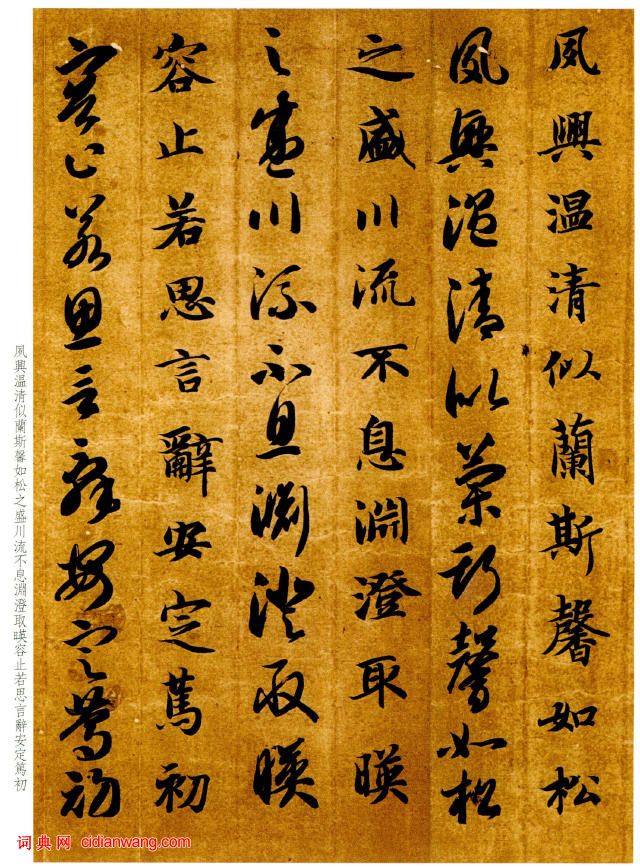 夙興温清似蘭斯馨如松
夙興温清似蘭斯馨如松
之盛川流不息淵澄取暎
之盛川流不息淵澄取暎
容止若思言辭安定篤初
容止若思言辭安定篤初
夙興温清似蘭斯馨如松之盛川流不息淵澄取暎容止若思言辭安定篤初
词典网 cidianwang.com